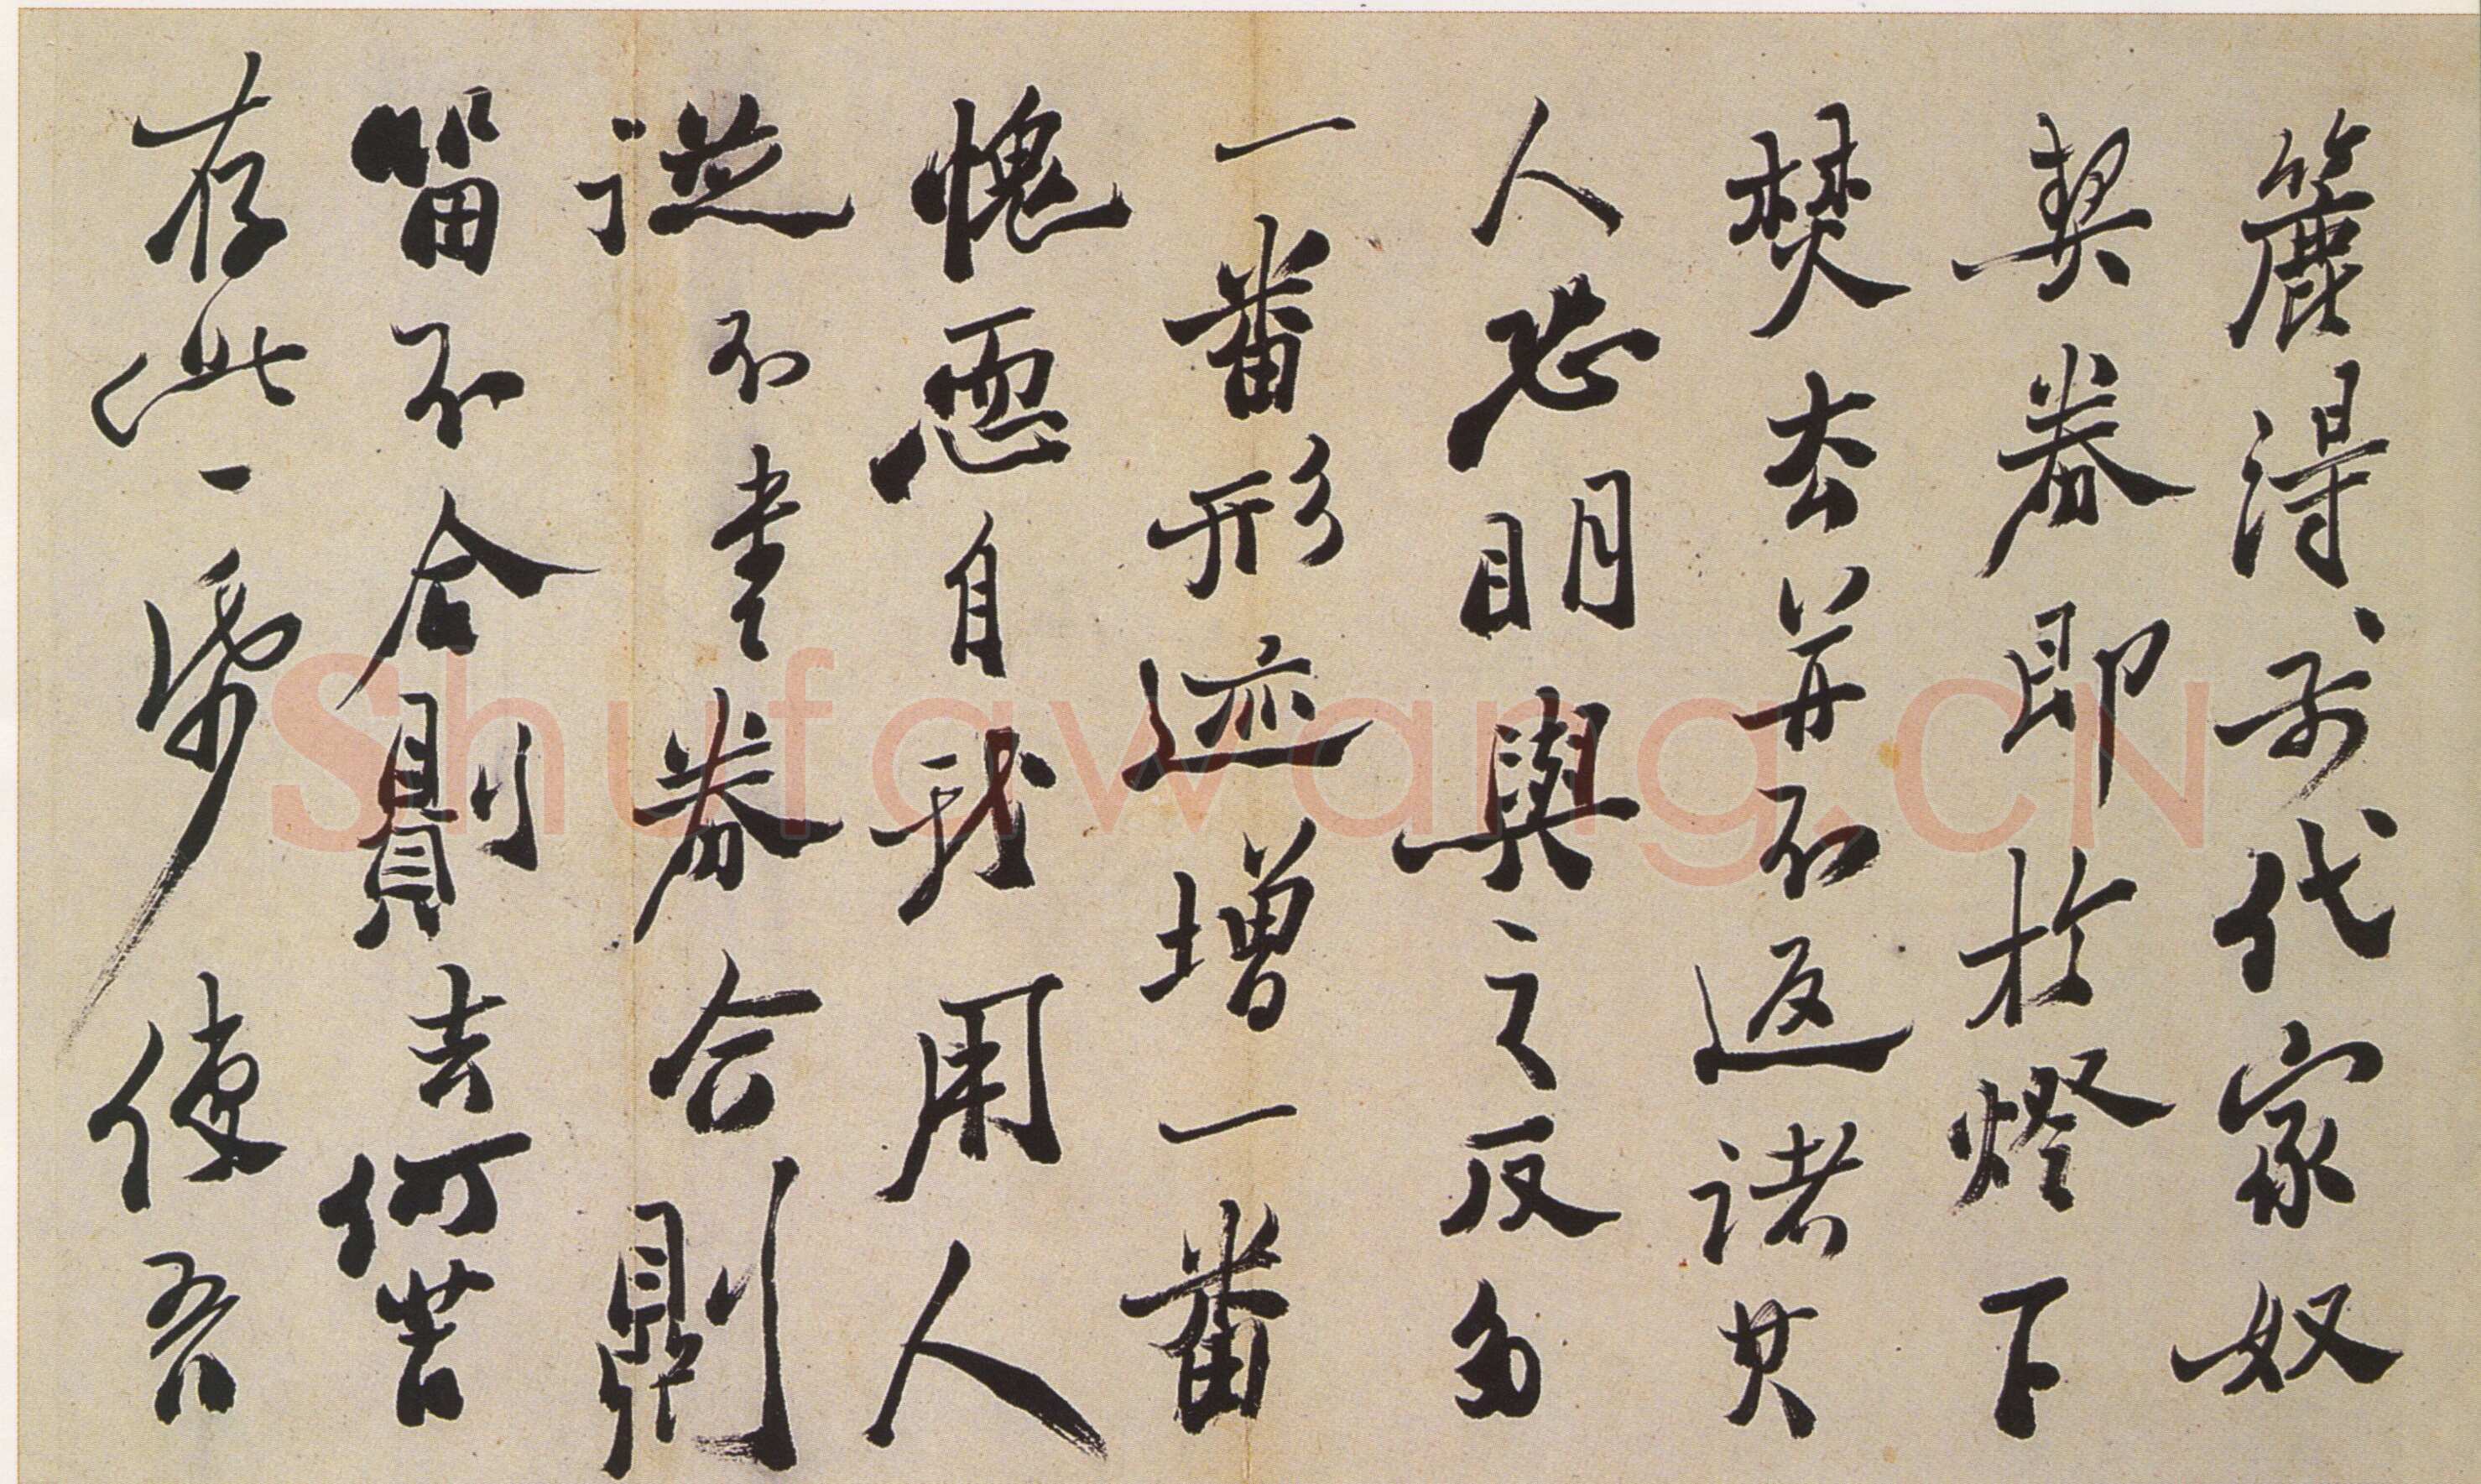 簏得前代家奴
契券即於燈下
焚去并不返諸其
人恐明與之反多
一番形迹增一番
愧恧自我用人
從不書券合則
留不合則去何苦
存此一紙使吾
Shufawang.CN